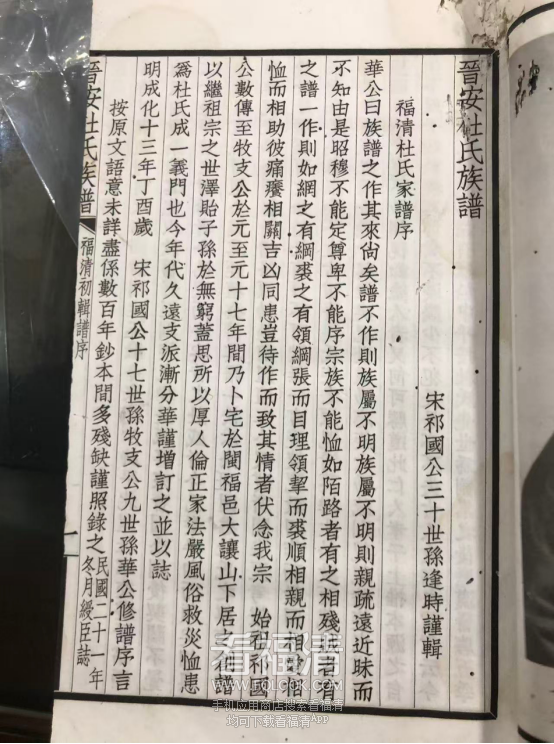 晉安杜氏族譜
宋祁國公三十世孫逢時謹輯
福清杜氏家譜序
華公曰族譜之作其來尙矣譜不作則族屬不明族屬不明則親疏遠近昧而
不知由是昭穆不能定尊卑不能序宗族不能恤如陌路者有之相殘
之譜一作則如網之有綱裘之有領綱張而目理領挈而裘順相親而相
恤而相助彼痛癢相關吉凶同患豈待作而致其情者伏念我宗 始祖祁國
公數傳至牧支公於元至元十七年間乃卜宅於閩福邑大讓山下居之
以繼祖宗之世澤貽子孫於無窮蓋思所以厚人倫正家法嚴風俗救災恤患
爲杜氏成一義門也今年代久遠支派漸分華謹增訂之並以誌
明成化十三年丁酉歲 宋祁國公十七世孫牧支公九世孫華公修譜序言
按原文語意未詳盡係數百年鈔本間多殘缺謹照錄之民國二十一年
冬月綬臣誌
晉安杜氏族譜
福清初輯譜序
一
看福清
WWW.FQLOOK.COM
手机应用商店搜索看福清
均可下载看福清APP